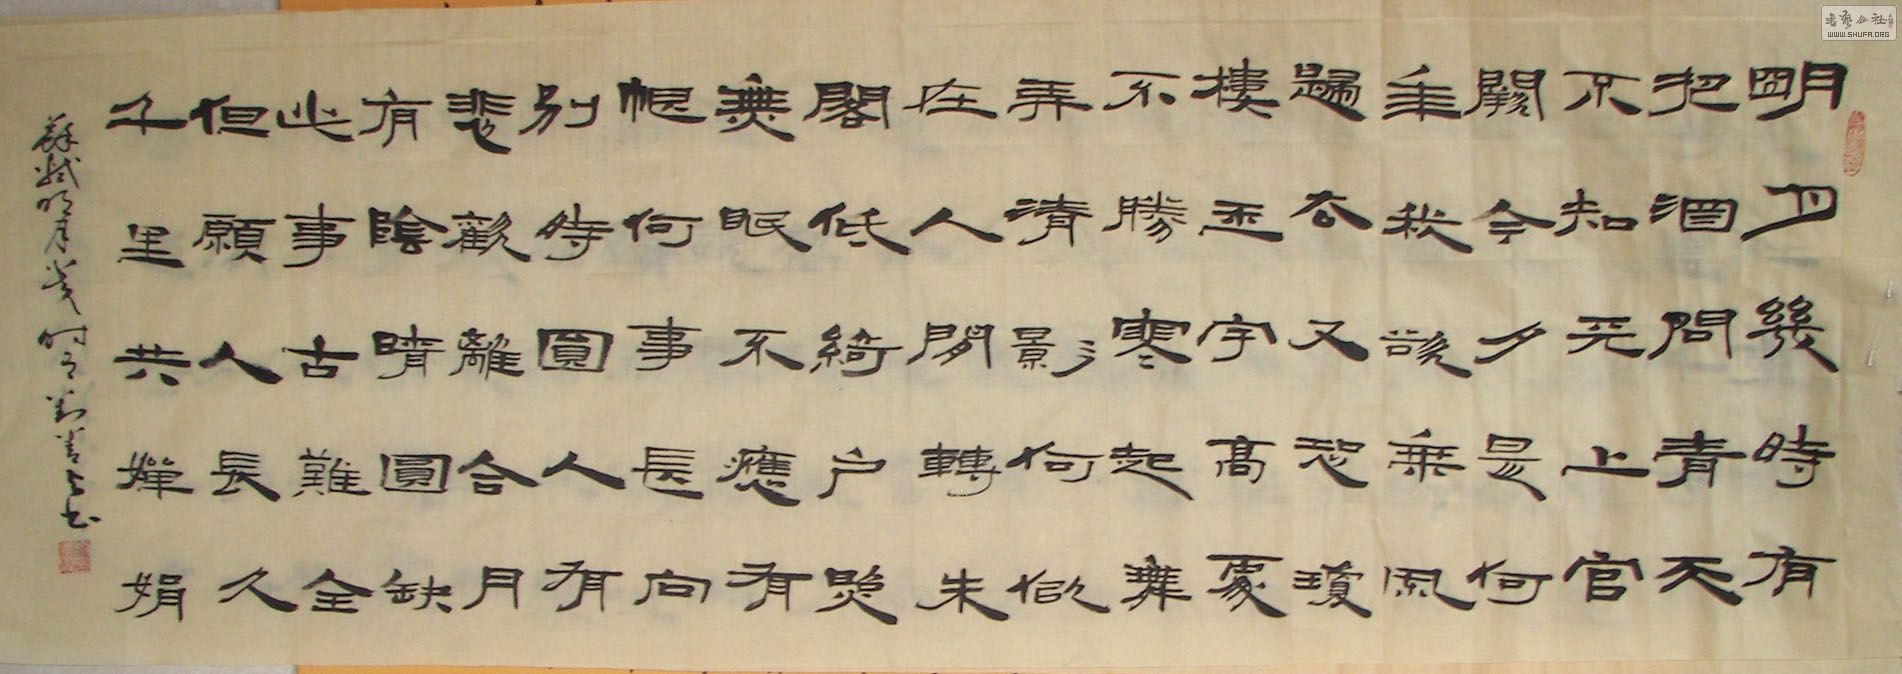 明月幾時有
把酒問青天
不知天上宮
闕今夕是何
年我欲乘風
歸去又恐瓊
樓玉宇高處
不勝寒起舞
弄清影何似
在人間轉朱
閣低綺户照
無眠不應有
恨何事長向
别時圓人有
悲歡離合月
有陰晴圓缺
此事古難全
但願人長久
千里共嬋娟
蘇軾明月幾時有劉善书
書藝公社
WWW.SHUFA.ORG